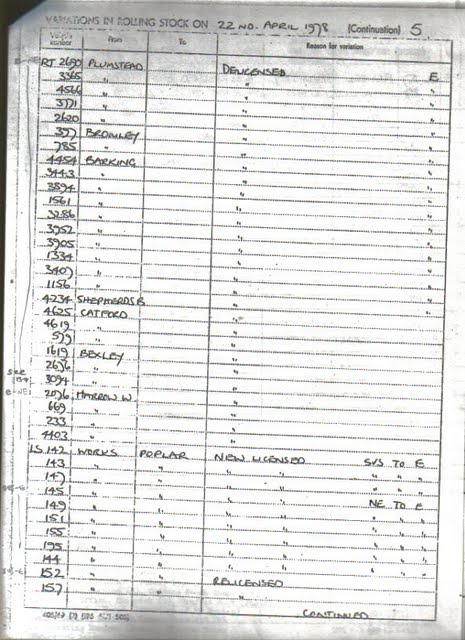 VARIATIONS IN ROLLING STOCK ON 22ND. APRIL 1978 (Continuation) 5
Vehicle number From To Reason for variation
RT 2690 PLUMSTEAD DELICENSED E
3365 " " "
4566 " " "
3771 " " "
2620 " " "
397 BROMLEY " "
785 " " "
4454 BARKING " "
3443 " " "
3894 " " "
1561 " " "
3286 " " "
3952 " " "
3905 " " "
1334 " " "
3407 " " "
1156 " " "
4234 SHEPHERDS B " "
4625 CATFORD " "
4619 " "
579 " "
1619 BEXLEY "
2676 " "
3094 " "
2096 HARROW W. "
669 " "
233 " "
4403 " "
LS 142 WORKS POPLAR NEW LICENSED SUS TO E
143 " " " " " " "
147 " " " " " " "
145 " " " " " " "
149 " " " " NE TO E
151 " " " " " " "
155 " " " " " " "
195 " " " " " " "
144 " " " " " " "
152 " " RELICENSED
157 " " "
CONTINUED